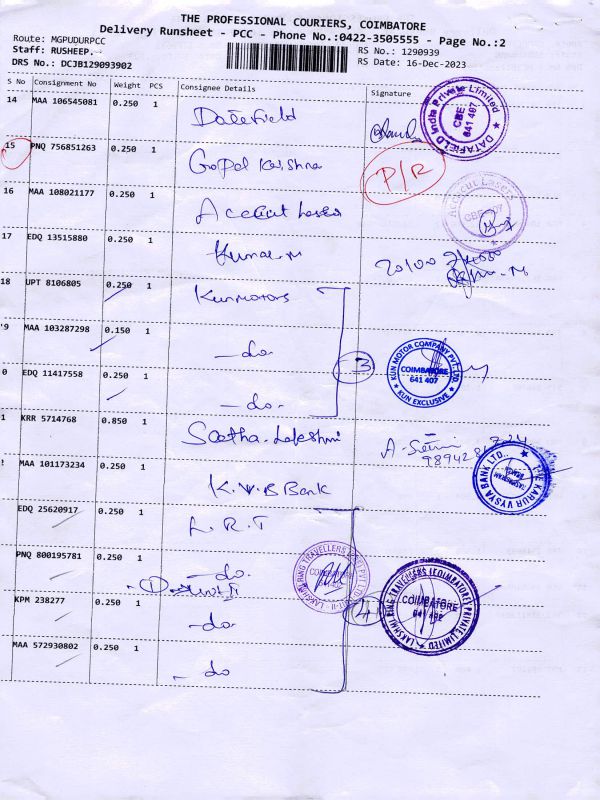 THE PROFESSIONAL COURIERS, COIMBATORE
Delivery Runsheet - PCC - Phone No.:0422-3505555 - Page No.:2
Route: MGPUDURPCC
Staff: RUSHEEP.
DRS No.: DCJB129093902
RS No.: 1290939
RS Date: 16-Dec-2023
S No Consignment No Weight PCS Consignee Details Signature
14 MAA 106545081 0.250 1 Datefield
DATAFIELD India Private Limited CBE 641 407
15 PNQ 756851263 0.250 1 Gopal Krishna P/R
16 MAA 108021177 0.250 1 Accciut Laser
Accicut Lasers
17 EDQ 13515880 0.250 1 Kumar.M
18 UPT 8106805 0.250 1 Kunmotors
'9 MAA 103287298 0.150 1 -do-
3
KUN MOTOR COMPANY PVT LTD. COIMBATORE 641 407 KUN EXCLUSIVE
0 EDQ 11417558 0.250 1 -do-
1 KRR 5714768 0.850 1 Seetha.Lakshmi
MAA 101173234 0.250 1 K.V.B Bank
THE KARUR VYSYA BANK LTD.
EDQ 25620917 0.250 1 L.R.T
PNQ 800195781 0.250 1 -do-
LAKSHMI RING TRAVELLERS
KPM 238277 0.250 1 -do-
4
LAKSHMI RING TRAVELLERS (COIMBATORE) PRIVATE LIMITED COIMBATORE
MAA 572930802 0.250 1 - do